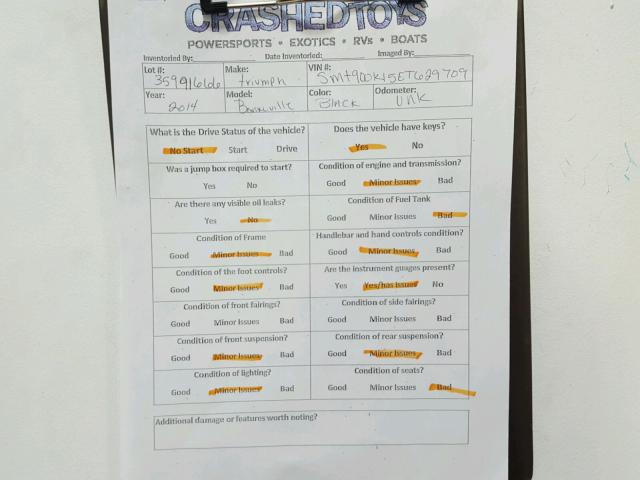 CRASHEDTOYS
POWERSPORTS • EXOTICS • RVs • BOATS
Inventoried By: Date Inventoried: Imaged By:
Lot #: 35991666 Make: triumph VIN #:
Year: 2014 Model: Bonneville Color: Black Odometer: Unk
What is the Drive Status of the vehicle? Does the vehicle have keys?
No Start Start Drive Yes No
Was a jump box required to start? Condition of engine and transmission?
Yes No Good Minor Issues Bad
Are there any visible oil leaks? Condition of Fuel Tank
Yes No Good Minor Issues Bad
Condition of Frame Handlebar and hand controls condition?
Good Minor Issues Bad Good Minor Issues Bad
Condition of the foot controls? Are the instrument guages present?
Good Minor Issues Bad Yes Yes/has issues No
Condition of front fairings? Condition of side fairings?
Good Minor Issues Bad Good Minor Issues Bad
Condition of front suspension? Condition of rear suspension?
Good Minor Issues Bad Good Minor Issues Bad
Condition of lighting? Condition of seats?
Good Minor Issues Bad Good Minor Issues Bad
Additional damage or features worth noting?